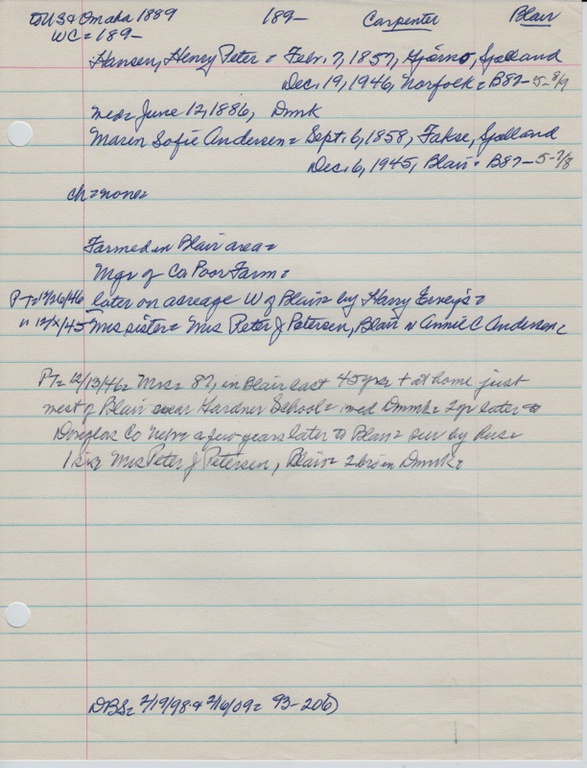 to US & Omaha 1889 189- Carpenter Blair
WC = 189-
Hansen, Henry Peter = Febr. 7, 1857, Sjælland
Dec. 19, 1946, Norfolk = B87-5-8/9
med = June 12, 1886, Dmk
Maren Sofie Andersen = Sept. 6, 1858, Fakse, Sjælland
Dec. 6, 1945, Blair = B87-5-7/8
ch = none =
Farmed in Blair area =
Mgr of Co Poor Farm =
PT = 12/26/46 later on acreage W of Blair = by Harry
" 12/ /45 Mrs sister = Mrs Peter J Petersen, Blair n Annie C Andersen
PT = 12/13/46 = Mrs = 87, in Blair last 45 yrs + at home just
west of Blair near Gardner School = med Dmmk = 2 yr later to
Douglas Co Nebr = a few years later to Blair = sur by hus =
1 sis Mrs Peter J Petersen, Blair = 2 bro in Dmmk =
DBS = 2/19/98 & 2/16/09 = 93-206)